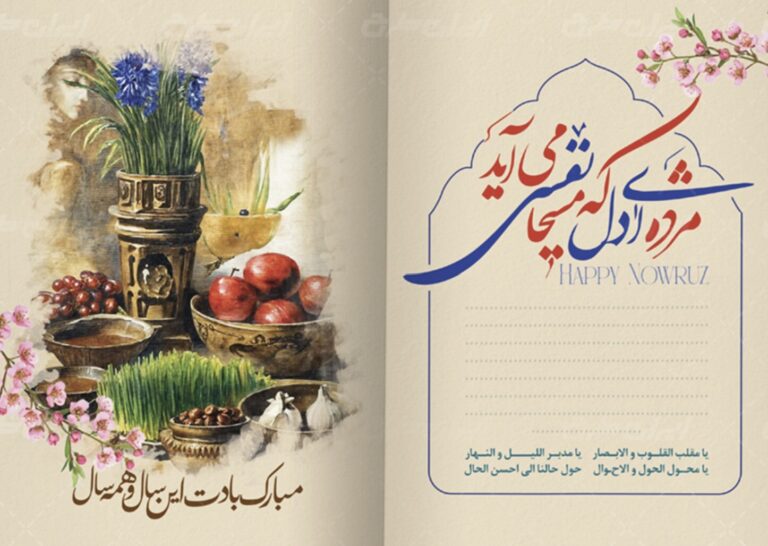 مژده ای دل که مسیحا نفسی می آید
HAPPY NOWRUZ
یا مقلب القلوب و الابصار یا مدبر اللیل و النهار
یا محول الحول و الاحوال حول حالنا الی احسن الحال
مبارک بادت این سال و همه سال